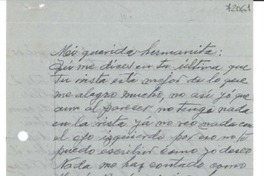 Mi querida hermanita:
Así me dices en tu última que
tu vista está mejor de lo que
me alegro mucho, no así yo que
aun al parecer no tengo nada
en la vista ya no veo nada con
el ojo izquierdo por eso no te
puedo escribir como yo deseo
Nada me has contado como